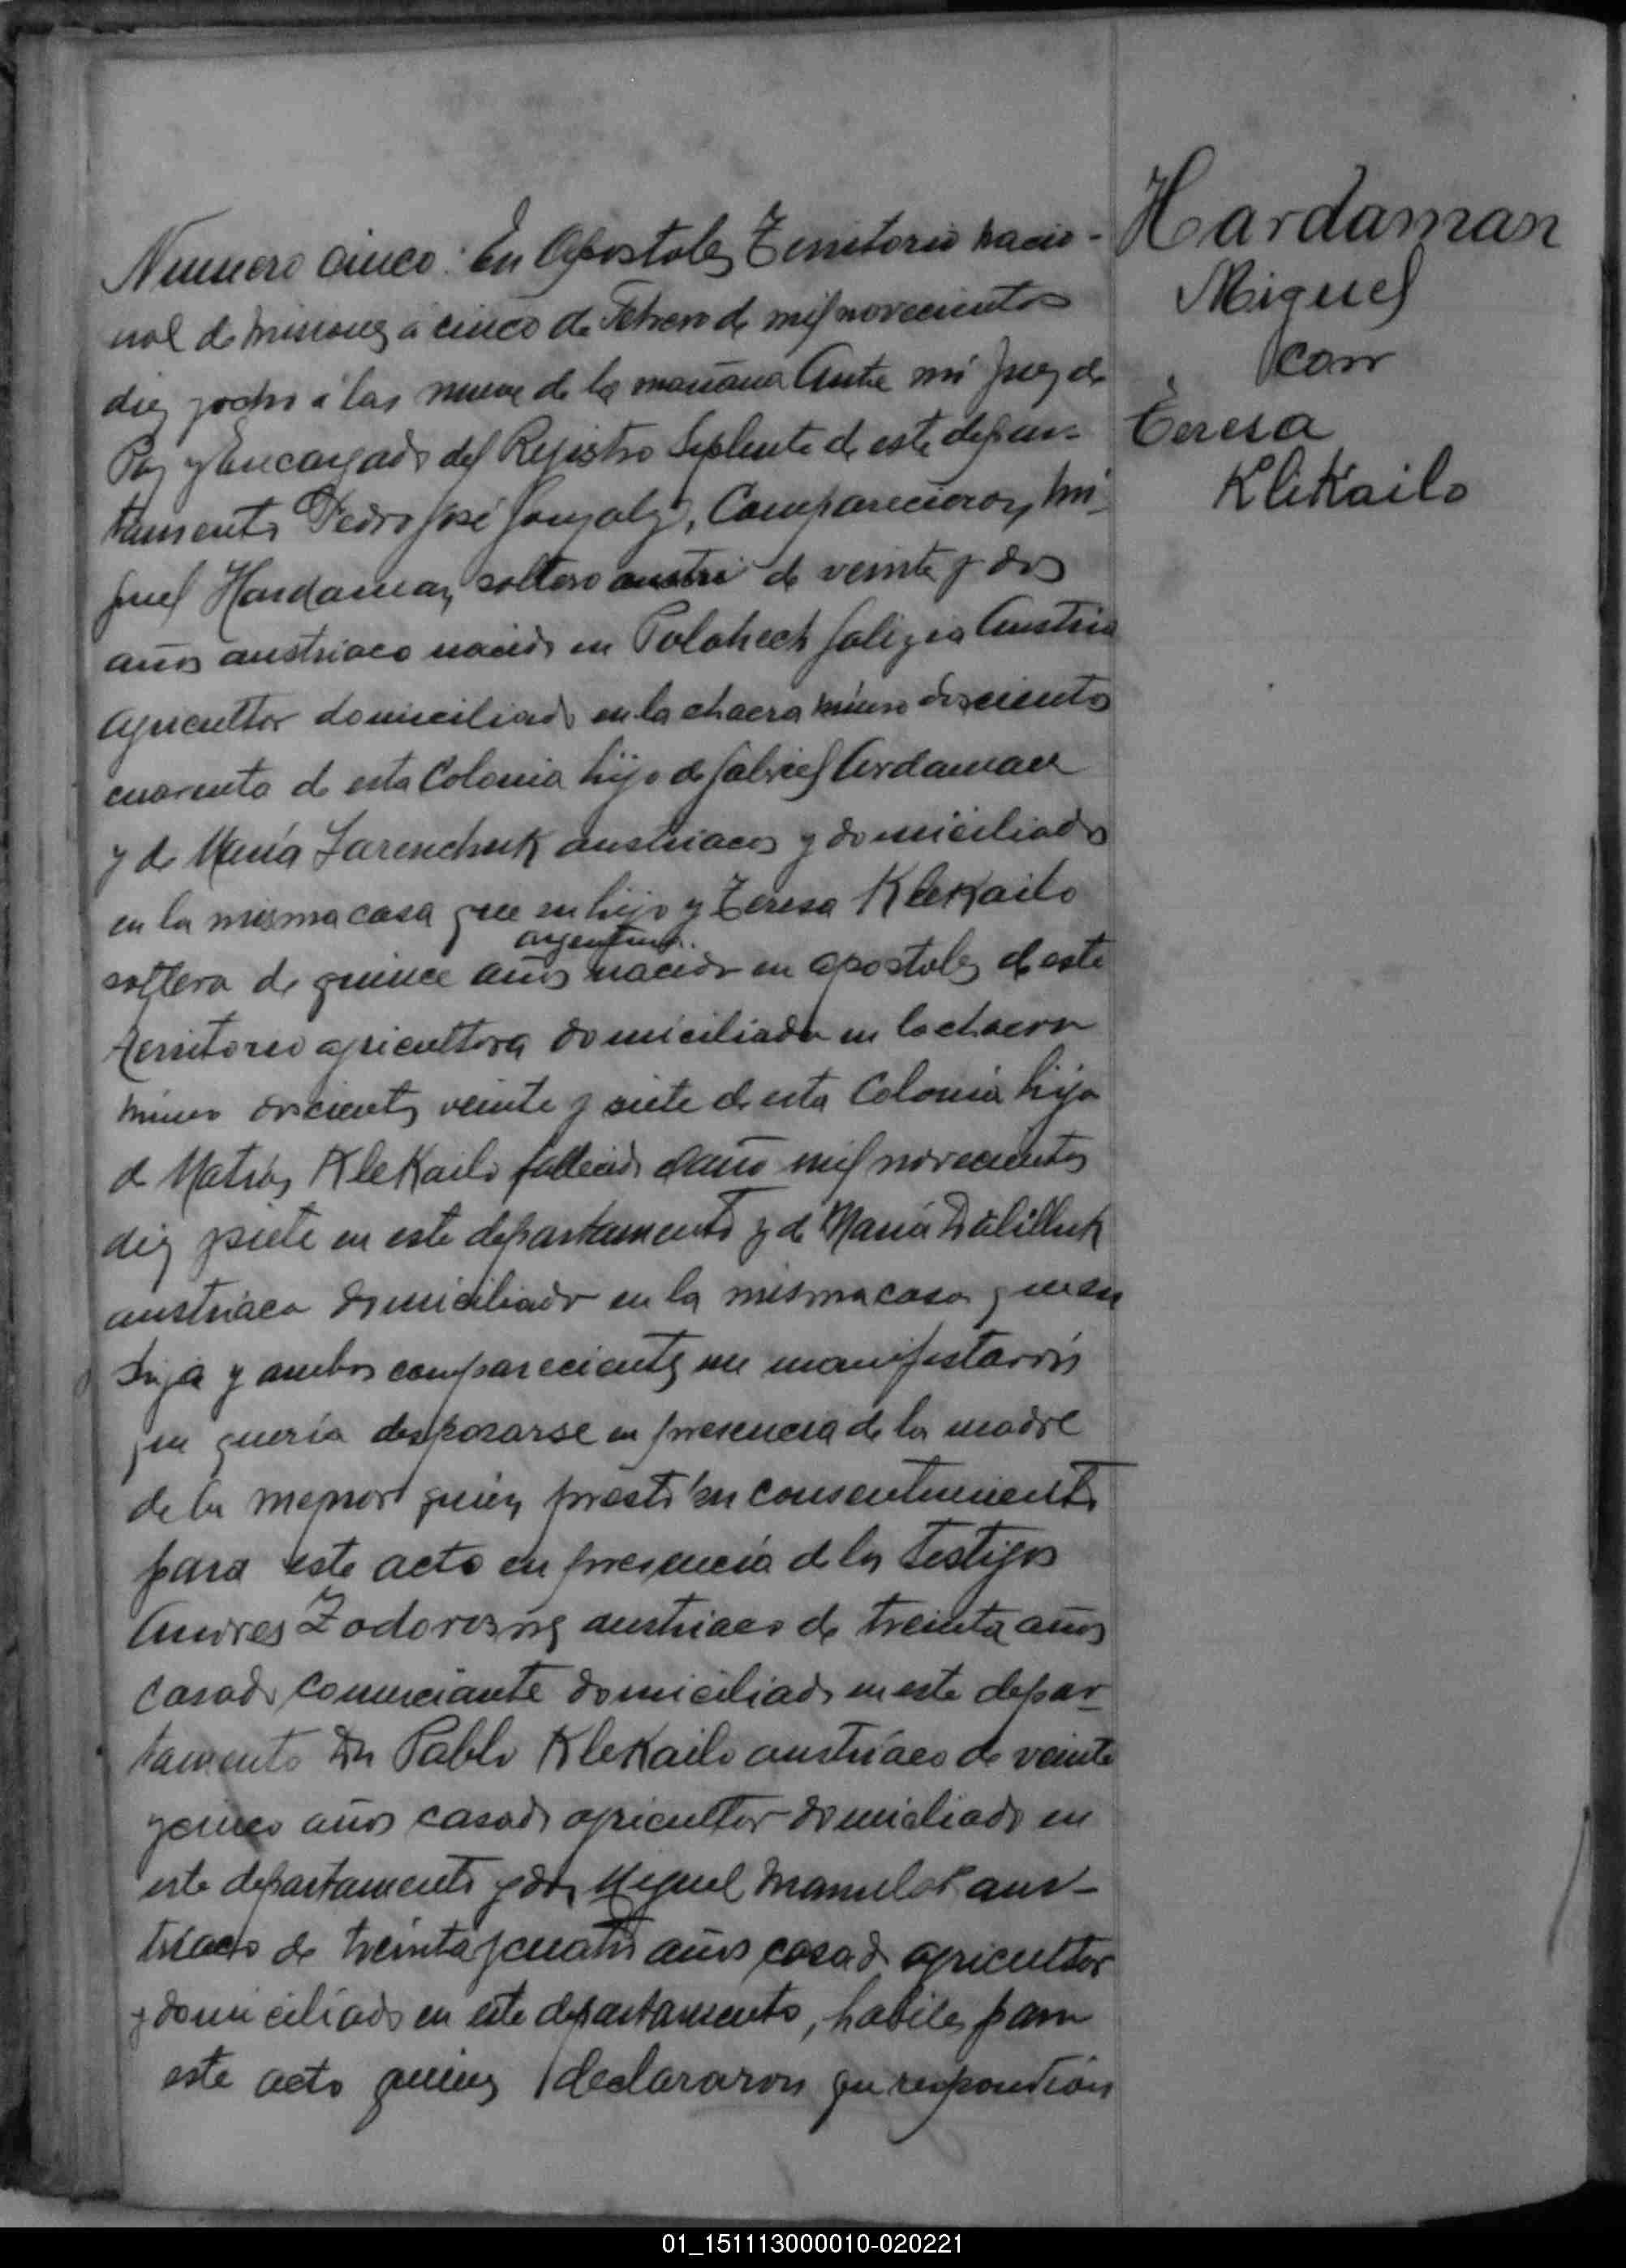 Hardaman
Miguel
con
Teresa
KleKailo
Numero cinco: En Apostoles Territorio nacio-
nal de Misiones a cinco de Febrero de mil novecientos
diez y ocho a las nueve de la mañana Ante mi Juez de
Paz y Encargado del Registro Suplente de este depar-
tamento Pedro José Gonzalez, Comparecieron, Mi-
guel Hardaman, soltero austri de veinte y dos
años austriaco nacido en Galizia Austria
agricultor domiciliado en la chacra número doscientos
cuarenta de esta Colonia hijo de Gabriel Ardaman
y de María Jarenchuk austriacos y domiciliados
en la misma casa que su hijo y Teresa KleKailo
argentina
soltera de quince años nacida en Apostoles de este
territorio agricultora domiciliada en la chacra
número doscientos veinte y siete de esta Colonia hija
de Matías KleKailo fallecido el año mil novecientos
diez y siete en este departamento y de María
austriaca domiciliada en la misma casa que su
hija y ambos comparecientes me manifestaron
que quería desposarse en presencia de la madre
de la menor quien prestó su consentimiento
para este acto en presencia de los testigos
Andres austriaco de treinta años
casado comerciante domiciliado en este depar-
tamento Dn Pablo KleKailo austriaco de veinte
y cinco años casado agricultor domiciliado en
este departamento y don Miguel aus-
triaco de treinta y cuatro años casado agricultor
y domiciliado en este departamento, habiles para
este acto quienes declararon que respondían
01_151113000010-020221